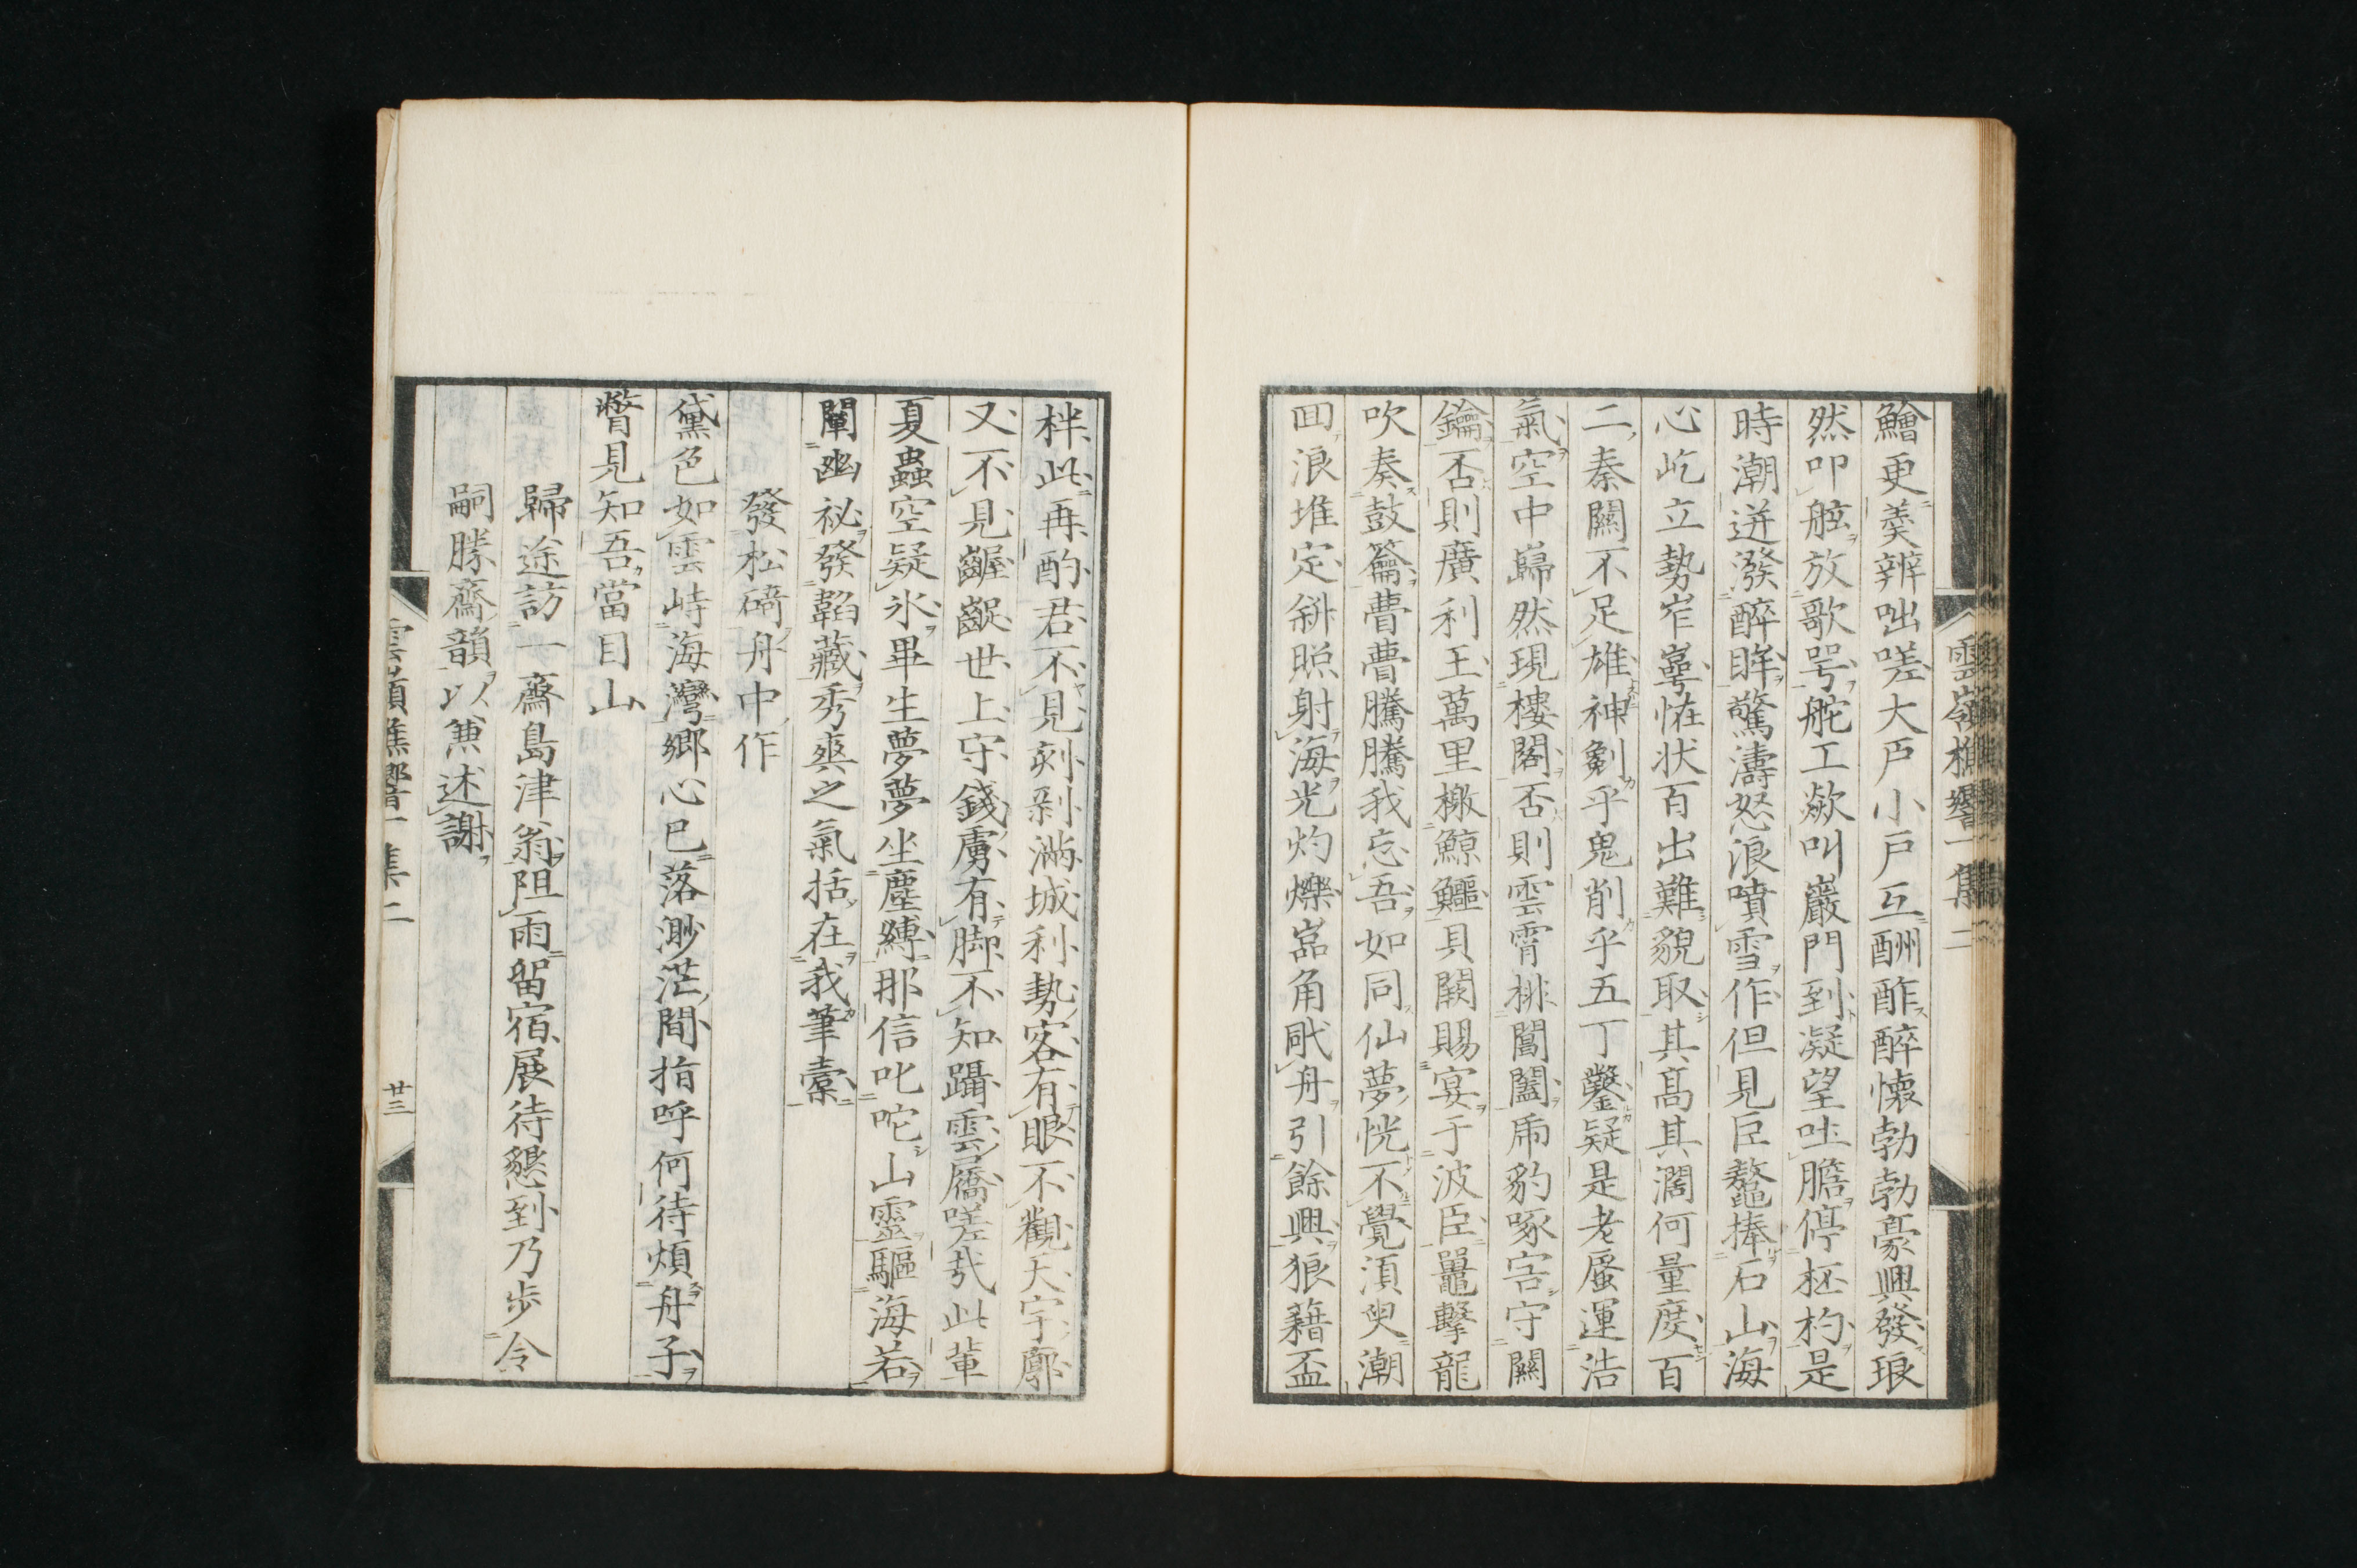 鱠更羹辨咄嗟大戶小戶互酬酢醉懷勃勃豪興發琅
然叩舷放歌咢舵工歘叫巖門到凝望吐膽停杯杓是
時潮迸潑醉眸驚濤怒浪噴雪作但見巨鼇捧石山海
心屹立勢岝㟧恠狀百出難貌取其高其濶何量度百
二秦關不足雄神剜乎鬼削乎五丁鑿疑是老蜃運浩
氣空中巋然現樓閣否則雲霄排閶闔虎豹啄害守關
鑰否則廣利王萬里檄鯨鱷貝闕賜宴于波臣鼉擊龍
吹奏鼓籥瞢瞢騰騰我忘吾如同仙夢恍不覺須臾潮
回浪堆定斜照射海光灼爍嵓角戙舟引餘興狼藉盃
柈此再酌君不見刻剥滿城利勢客有眼不觀天宇廓
又不見齷齪世上守錢虜有脚不知躡雲屩嗟哉此輩
夏蟲空疑氷畢生夢夢坐塵縛那信叱咜山靈驅海若
闡幽祕發韜藏秀爽之氣括在我筆橐
發松碕舟中作
黛色如雲峙海灣鄉心已落渺茫間指呼何待煩舟子
瞥見知吾當目山
歸途訪一齋島津翁阻雨留宿展待懇到乃步令
嗣勝齋韻以兼述謝
雲嶺樵響一集二
廿三